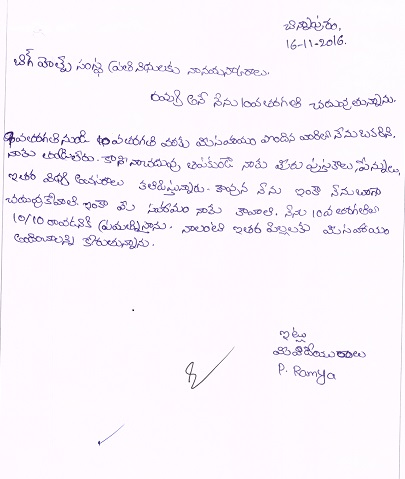 చిన్నాపురం,
16-11-2016.
బిగ్ హెల్ప్ సంస్థ ప్రతినిధులకు నా నమస్కారాలు.
రమ్య అనే నేను 10వ తరగతి చదువుతున్నాను.
9వ తరగతి నుండి 10వ తరగతి వరకు మీ సహాయం పొందిన వారిలో నేను ఒకరిని.
నాకు తండ్రి లేరు. కాని నా చదువు ఆపకుండా నాకు మీరు పుస్తకాలు, పెన్నులు,
ఇతర అవసరాలు కలిపిస్తున్నారు. కావున నేను ఇంకా నేను బాగా
చదువుకోవాలి ఇంకా మీ సహాయం నాకు కావాలి. నేను 10వ తరగతిలో
10/10 రావడానికి ప్రయత్నిస్తాను. నాలాంటి ఇతర పిల్లలకు మీ సహాయం
అందించాలని కోరుతున్నాను.
ఇట్లు
మీ విధేయురాలు
P. Ramya